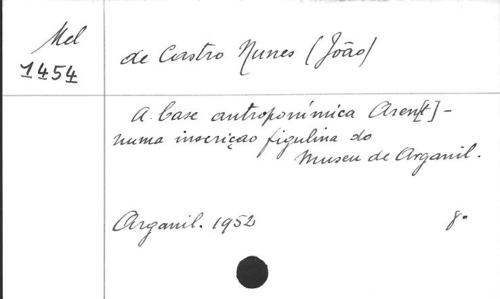 Mel
1454
de Castro Nunes (João)
A base antroponímica Aren[t] -
numa inscriçao figulina do
Museu de Arganil.
Arganil. 1952
8°